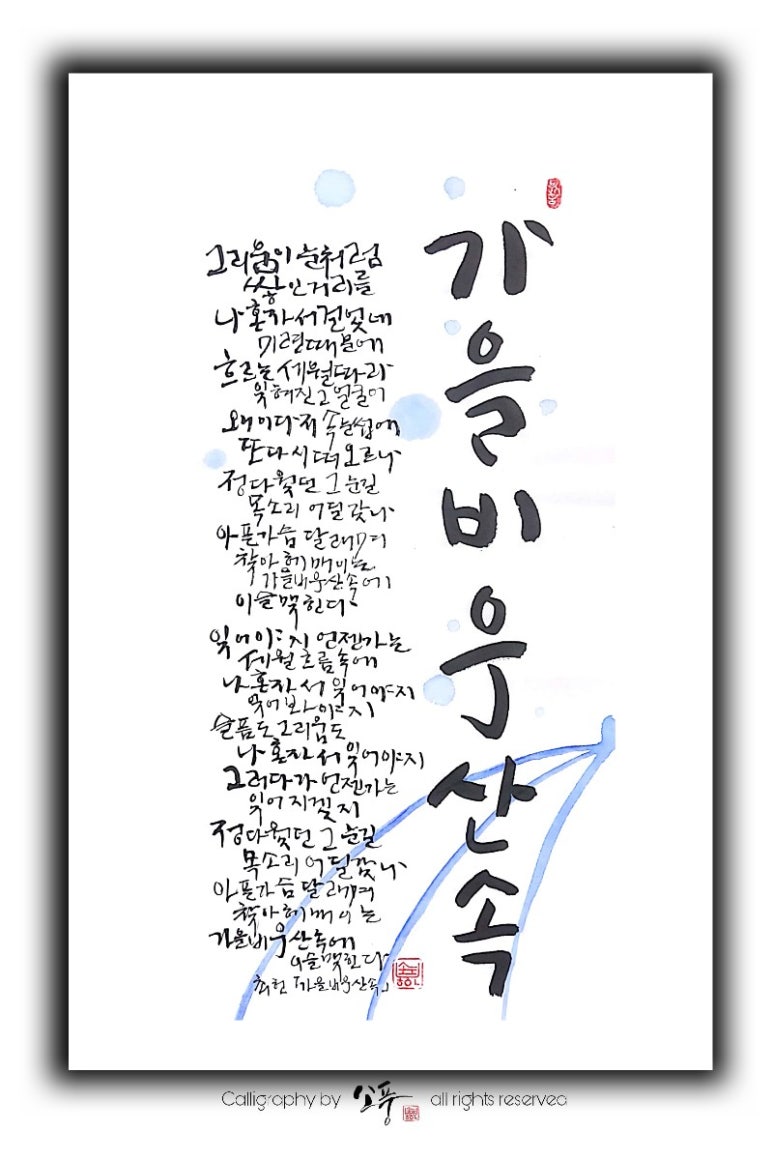 가을비우산속
그리움이 눈처럼
쌓인거리를
나혼자서걸었네
미련때문에
흐르는세월따라
잊혀진그얼굴이
왜이다지속눈썹에
또다시떠오르나
정다웠던그눈길
목소리어딜갔나
아픈가슴달래며
찾아헤매이는
가을비우산속에
이슬맺힌다
잊어야지언젠가는
세월흐름속에
나혼자서잊어야지
잊어봐야지
슬픔도그리움도
나혼자서잊어야지
그러다가언젠가는
잊어지겠지
정다웠던그눈길
목소리어딜갔나
아픈가슴달래며
찾아헤매이는
가을비우산속에
이슬맺힌다
최헌「가을비우산속」
Calligraphy by 소풍 all rights reserved